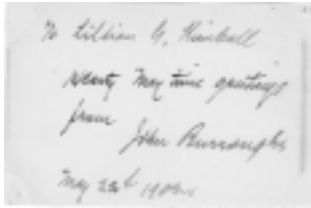 To Lillian G. Kimball
May time greetings
from
John Burroughs
May 22d